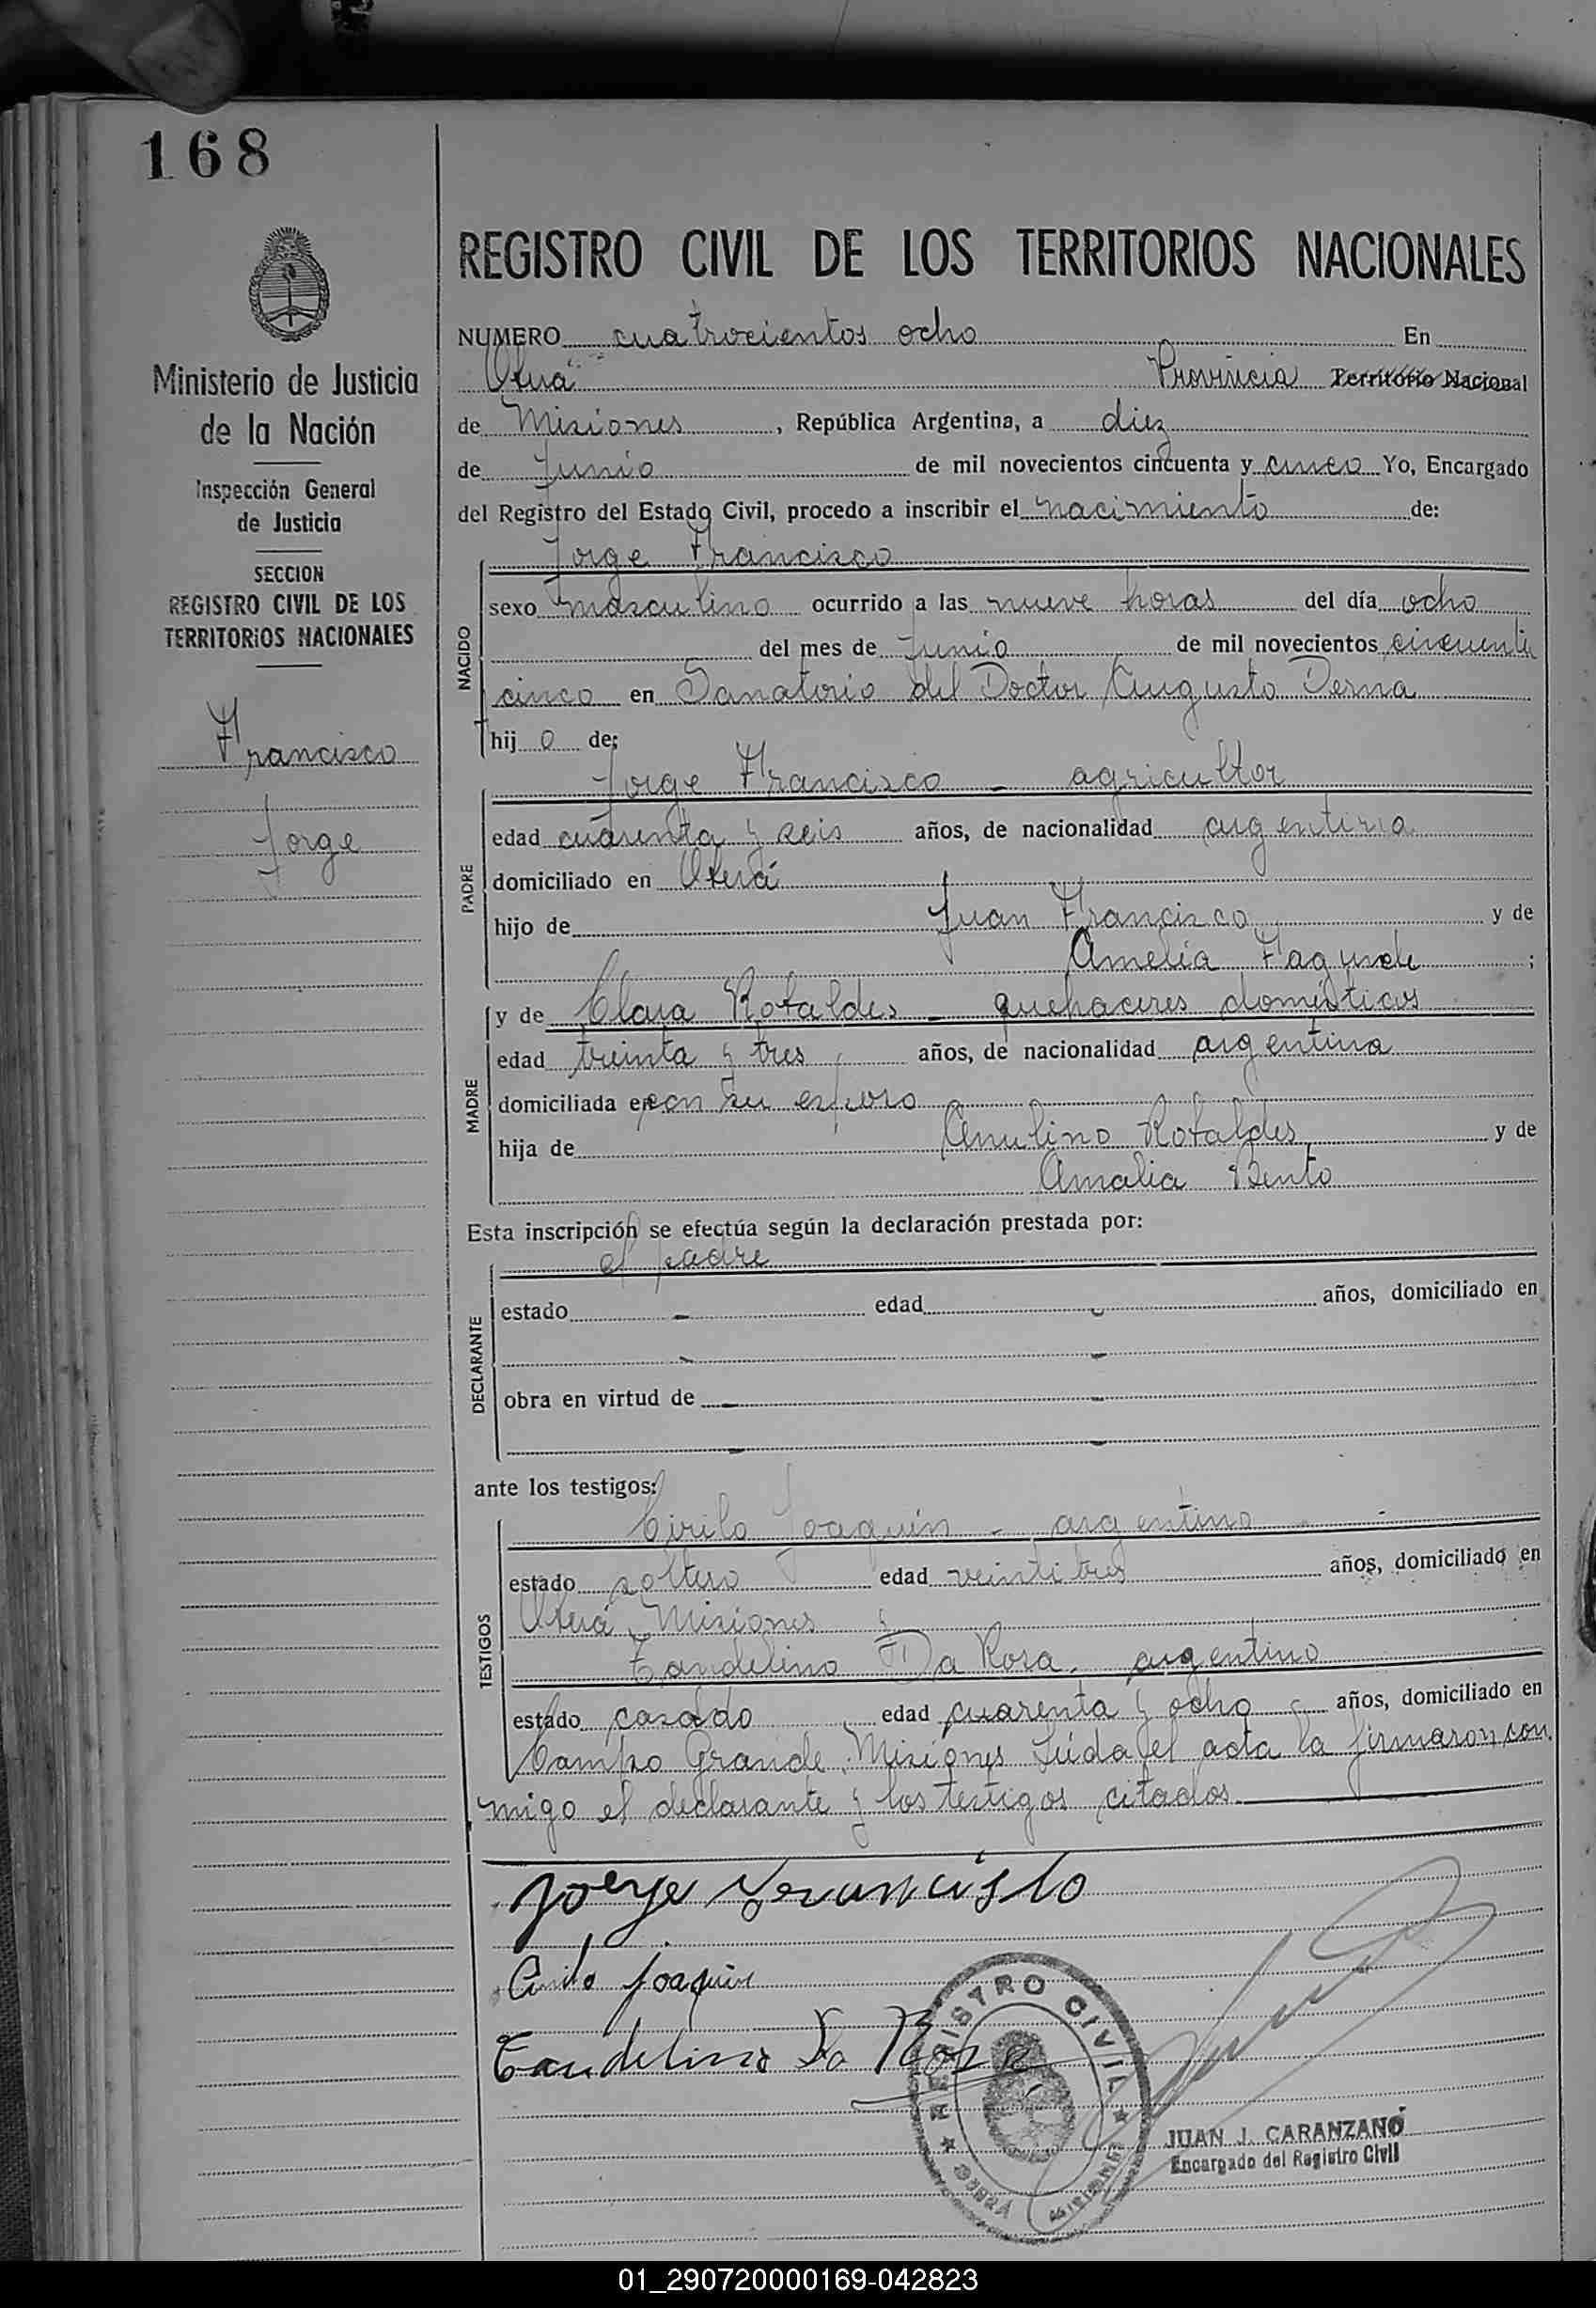 168
Ministerio de Justicia
de la Nación
Inspección General
de Justicia
SECCION
REGISTRO CIVIL DE LOS
TERRITORIOS NACIONALES
Francisco
Jorge
REGISTRO CIVIL DE LOS TERRITORIOS NACIONALES
NUMERO cuatrocientos ocho En
Oberá Provincia Territorio Nacional
de Misiones, República Argentina, a diez
de Junio de mil novecientos cincuenta y cinco Yo, Encargado
del Registro del Estado Civil, procedo a inscribir el nacimiento de:
Jorge Francisco
NACIDO
sexo masculino ocurrido a las nueve horas del día ocho
del mes de Junio de mil novecientos cincuenti
cinco en Sanatorio del Doctor Augusto Derna
hij o de:
Jorge Francisco - agricultor
PADRE
edad cuarenta y seis años, de nacionalidad argentina
domiciliado en Oberá
hijo de Juan Francisco y de
Amelia Fagunde ;
y de Clara Rotaldes - quehaceres domésticos
MADRE
edad treinta y tres años, de nacionalidad argentina
domiciliada en con su esposo
hija de Anulino Rotaldes y de
Amalia Bento
Esta inscripción se efectúa según la declaración prestada por:
el padre
DECLARANTE
estado - edad - años, domiciliado en
- -
obra en virtud de - -
- -
ante los testigos:
Cirilo Joaquín - argentino -
TESTIGOS
estado soltero edad veintitres años, domiciliado en
Oberá, Misiones y
Candelino Da Rosa, argentino
estado casado edad cuarenta y ocho años, domiciliado en
Campo Grande, Misiones Leída el acta la firmaron con
migo el declarante y los testigos citados.
Jorge Francisco
Cirilo Joaquin
Candelino Da Rosa
REGISTRO CIVIL
OBERÁ
MISIONES
JUAN J. CARANZANO
Encargado del Registro Civil
01_290720000169-042823